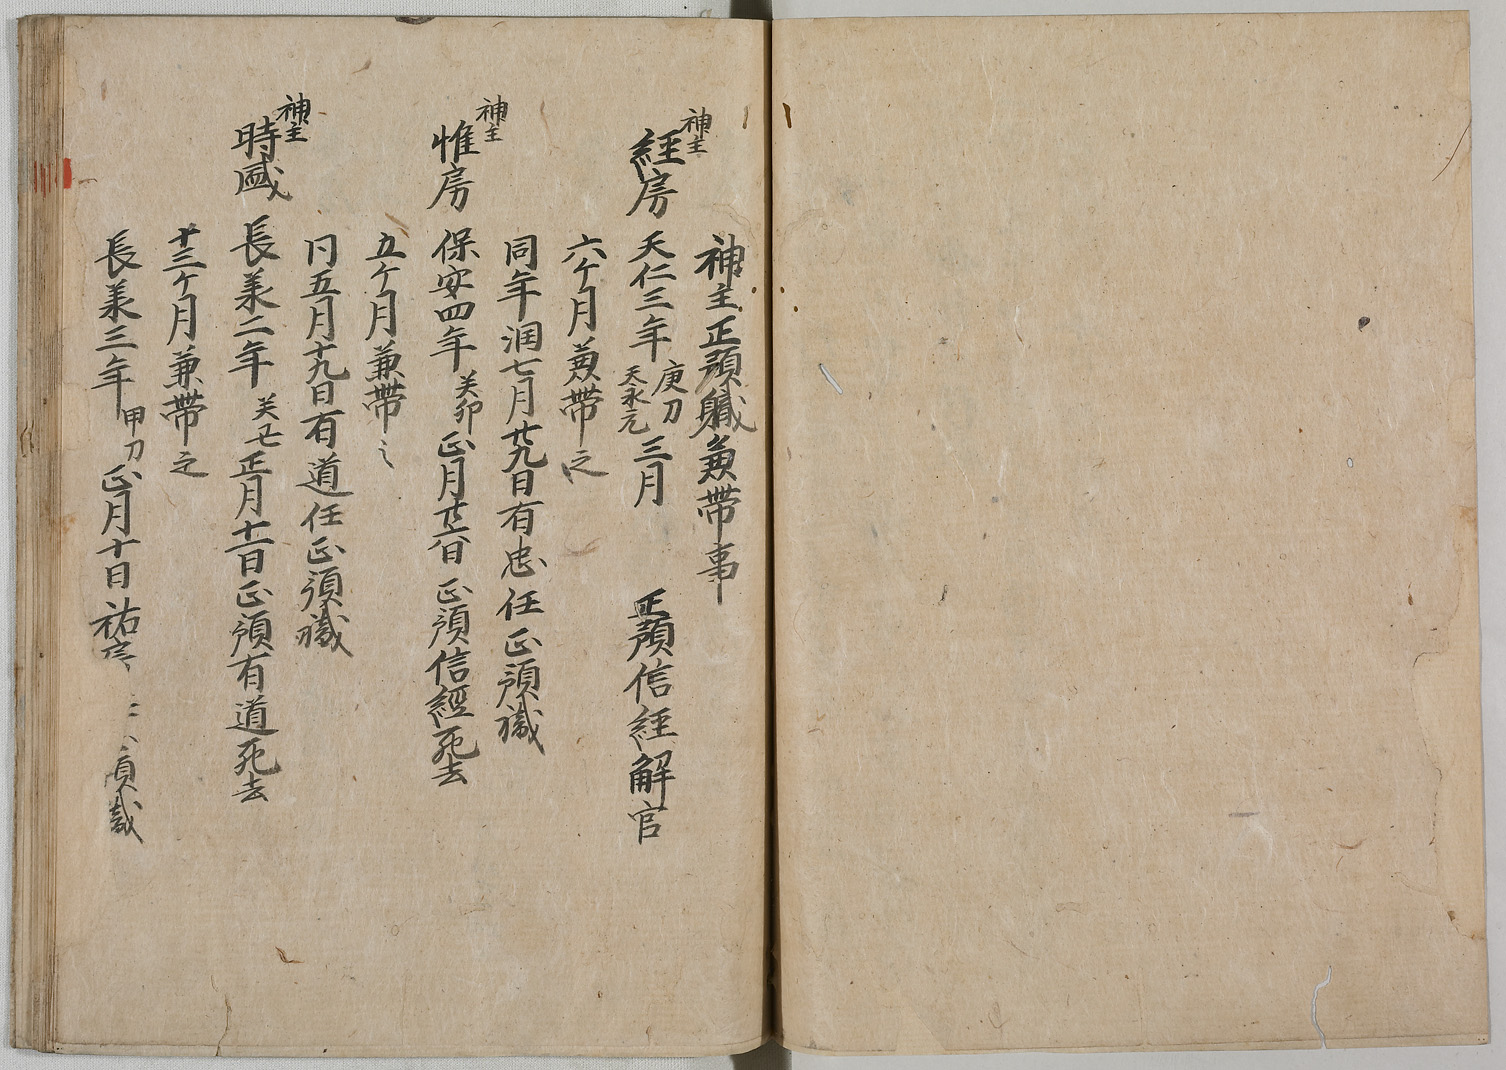 神主正預職兼帯事
神主
経房 天仁三年 庚刀 天永元 三月 正預信経解官
六ケ月兼帯之
同年潤七月廿九日有忠任正預職
神主
惟房 保安四年 癸卯 正月廿六日正預信經死去
五ケ月兼帯之
同五月十九日有道任正預職
神主
時盛 長承二年 癸丑 正月十一日正預有道死去
十三ケ月兼帯之
長承三年 甲刀 正月十日祐房 預職